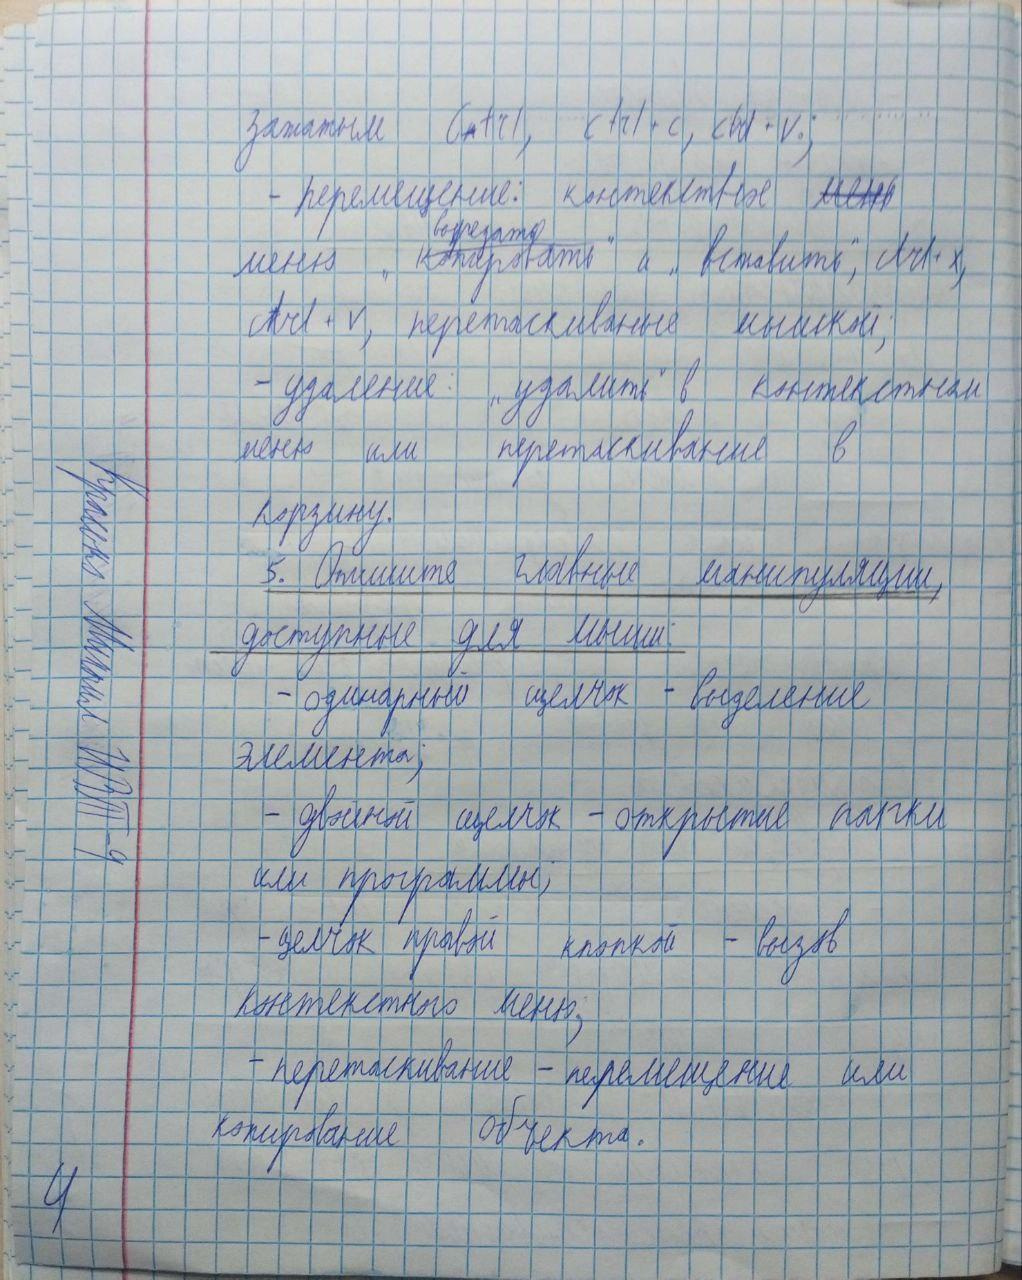 зажатым Cntrl, ctrl+c, ctrl+v.;
- перемещение: контекстное
вырезать
меню „копировать" и „вставить", ctrl+x,
ctrl+v, перетаскиваные мышкой;
- удаление: „удалить" в контекстном
меню или перетаскивание в
корзину.
5. Опишите главные манипуляции,
доступные для мыши:
- одинарный щелчок - выделение
элемента;
- двойной щелчок - открытие папки
или программы;
- щелчок правой кнопкой - вызов
контекстного меню;
- перетаскивание - перемещение или
копирование объекта.
4